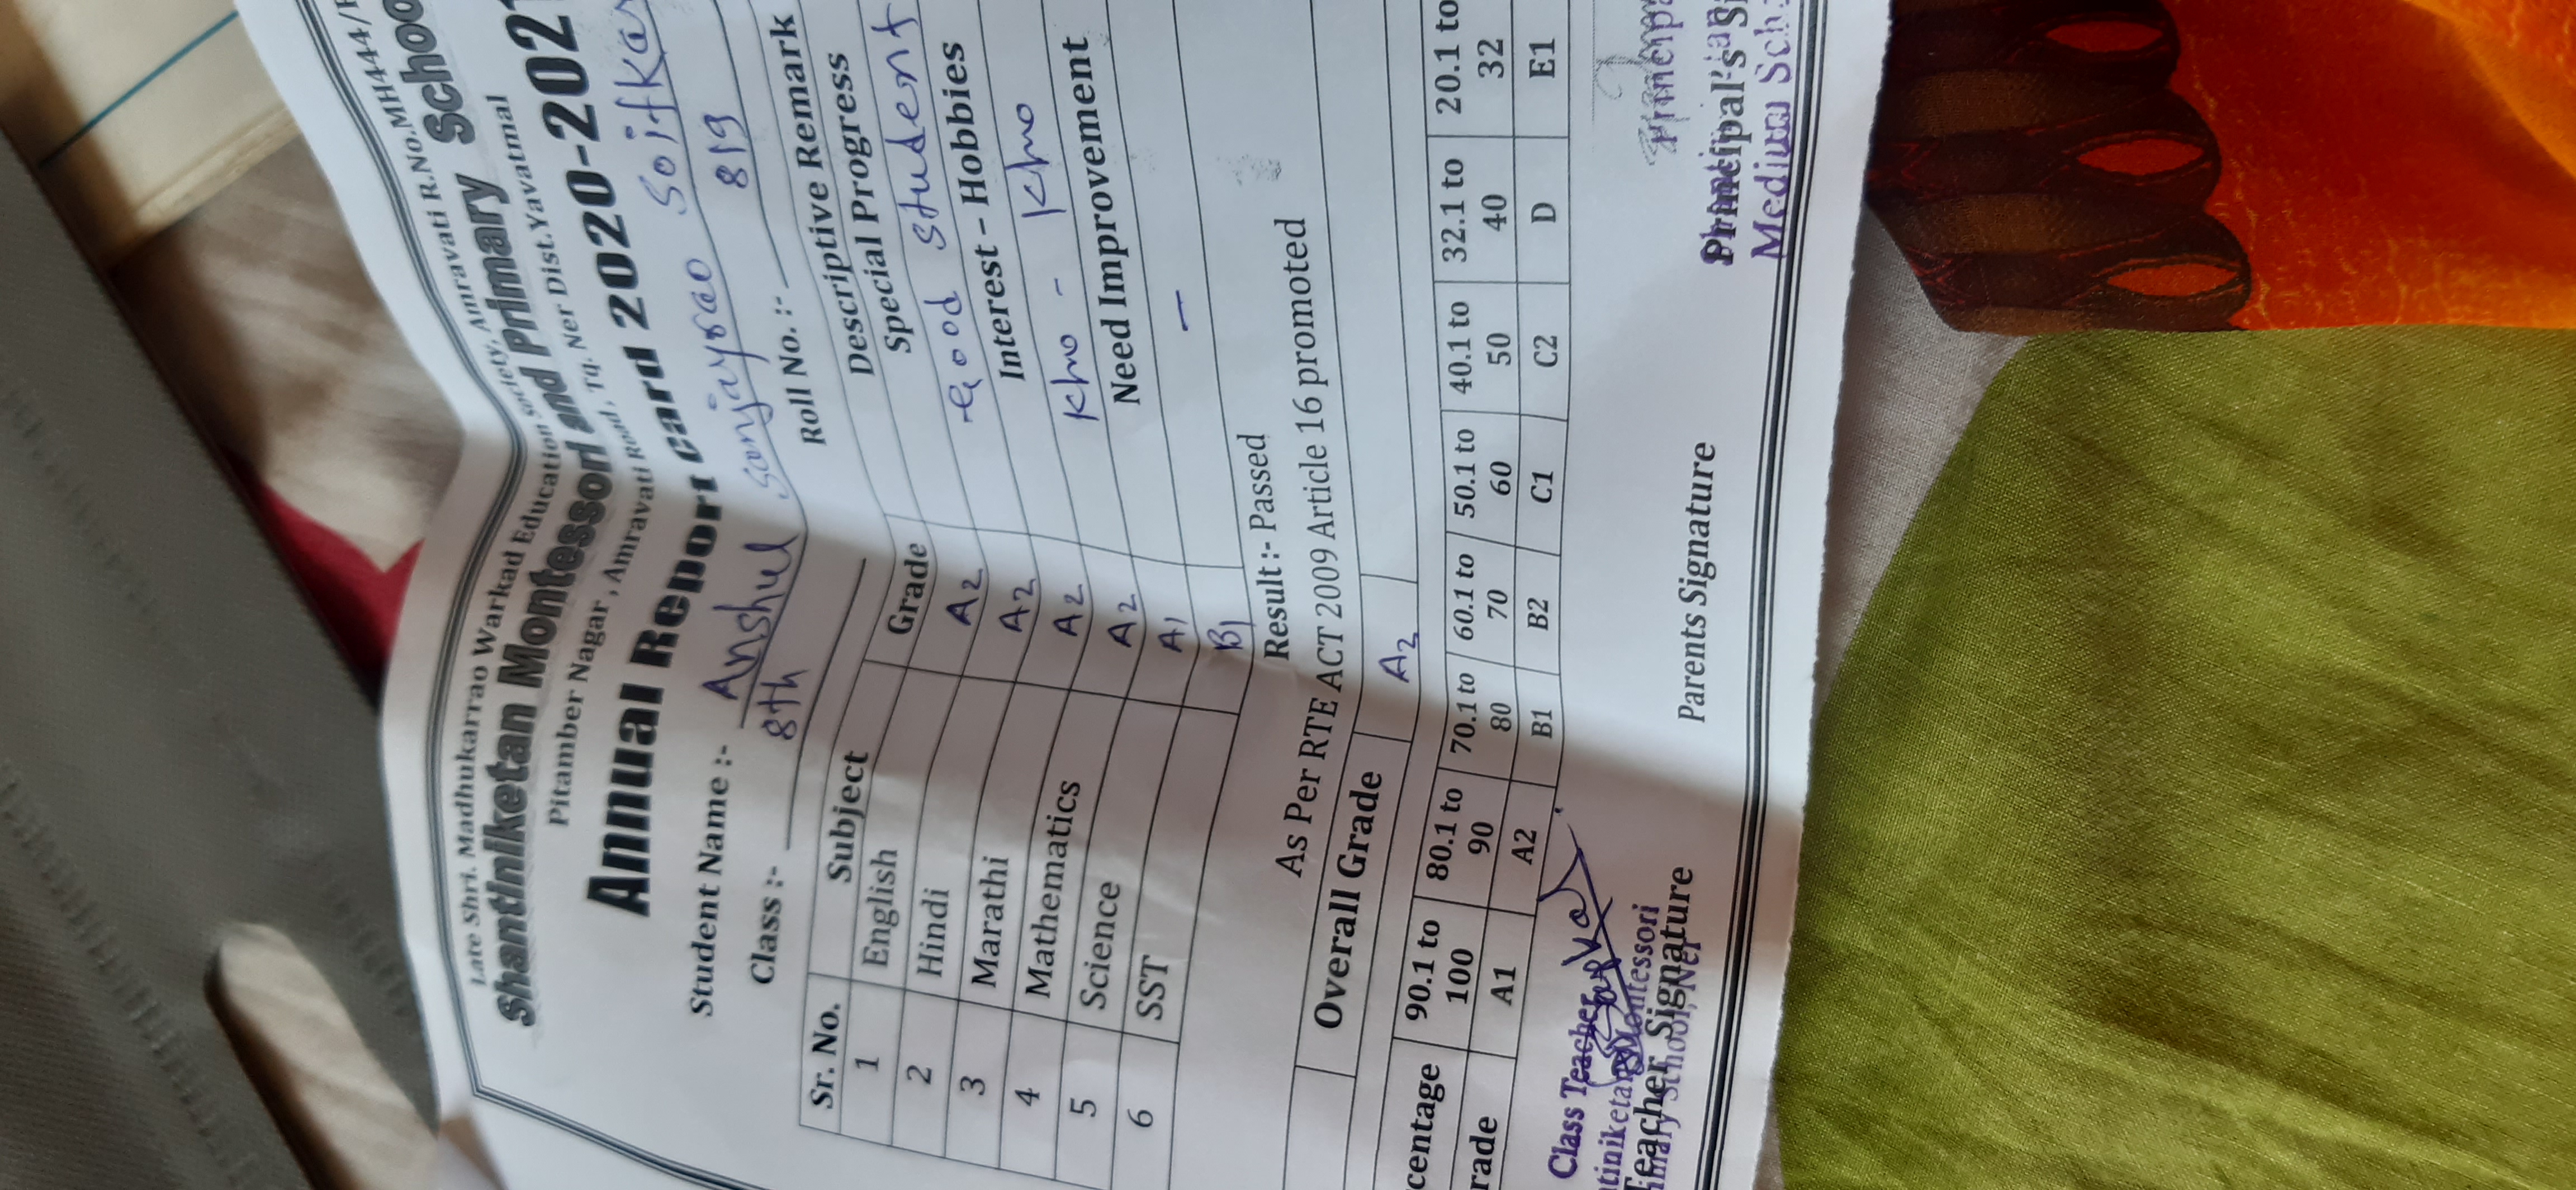 Late Shri. Madhukarrao Warkad Education Society, Amravati R.No.MH444/
Shantiniketan Montessori and Primary School
Pitamber Nagar, Amravati Road, Tq. Ner Dist. Yavatmal
Annual Report card 2020-2021
Student Name :- Anshul Sanjayrao Soitkar
Class :- 8th Roll No. :- 819
Sr. No. Subject Grade Descriptive Remark
1 English A2 Special Progress
2 Hindi A2 Good student
3 Marathi A2 Interest - Hobbies
4 Mathematics A2 Kho - Kho
5 Science A1 Need Improvement
6 SST B1 -
Result :- Passed
As Per RTE ACT 2009 Article 16 promoted
Overall Grade A2
centage 90.1 to 100 80.1 to 90 70.1 to 80 60.1 to 70 50.1 to 60 40.1 to 50 32.1 to 40 20.1 to 32
rade A1 A2 B1 B2 C1 C2 D E1
Class Teacher
Montessori
Teacher Signature Parents Signature Principal's
Medium